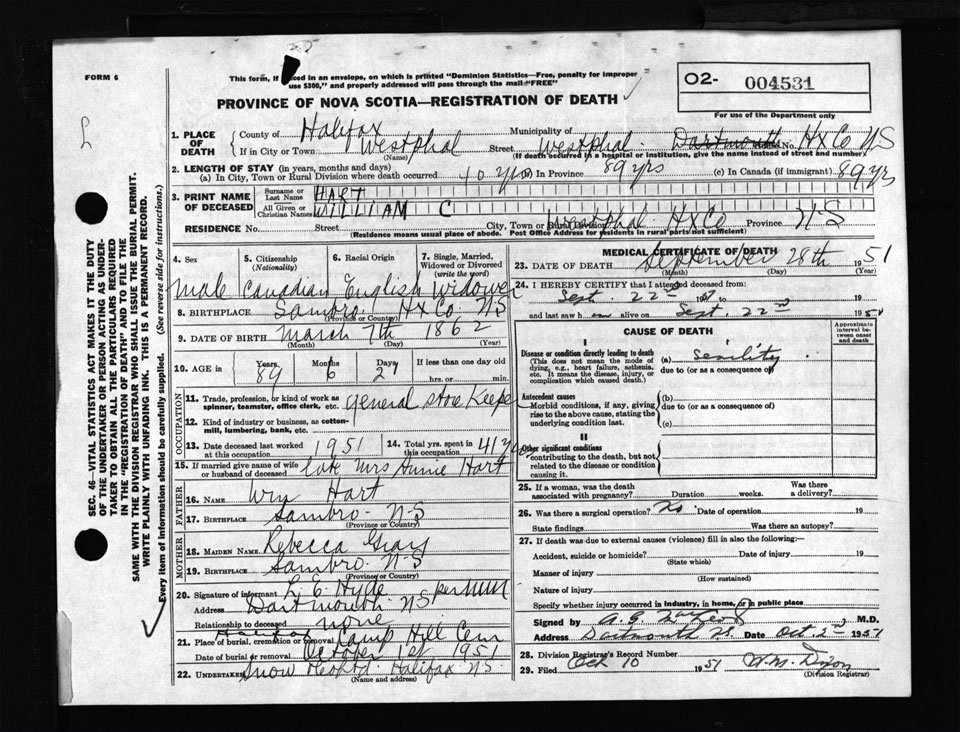 FORM 6
This form, if placed in an envelope, on which is printed "Dominion Statistics—Free, penalty for improper
use $300," and properly addressed will pass through the mail "FREE"
O2- 004531
PROVINCE OF NOVA SCOTIA—REGISTRATION OF DEATH
For use of the Department only
L
1. PLACE OF DEATH
County of Halifax Municipality of
If in City or Town Westphal Street Westphal Dartmouth No. Hx Co NS
(Name) (If death occurred in a hospital or institution, give the name instead of street and number)
2. LENGTH OF STAY (in years, months and days)
(a) In City, Town or Rural Division where death occurred 40 yrs (b) In Province 89 yrs (c) In Canada (if immigrant) 89 yrs
3. PRINT NAME OF DECEASED
Surname or Last Name HART
All Given or Christian Names WILLIAM C
RESIDENCE No. Street City, Town or Rural Division Westphal Hx Co Province N-S
(Residence means usual place of abode. Post Office Address for residents in rural parts not sufficient)
4. Sex 5. Citizenship (Nationality) 6. Racial Origin 7. Single, Married, Widowed or Divorced (write the word)
Male Canadian English Widower
8. BIRTHPLACE Sambro Hx Co. NS
(Province or Country)
9. DATE OF BIRTH March 7th 1862
(Month) (Day) (Year)
10. AGE in Years 89 Months 6 Days 2 If less than one day old
hrs. or min.
OCCUPATION
11. Trade, profession, or kind of work as spinner, teamster, office clerk, etc. General Store Keeper
12. Kind of industry or business, as cotton-mill, lumbering, bank, etc.
13. Date deceased last worked at this occupation 1951 14. Total yrs. spent in this occupation 41 yrs
15. If married give name of wife or husband of deceased late Mrs Annie Hart
FATHER
16. NAME Wm Hart
17. BIRTHPLACE Sambro N-S
(Province or Country)
MOTHER
18. MAIDEN NAME Rebecca Gray
19. BIRTHPLACE Sambro N-S
(Province or Country)
20. Signature of informant L. E. Hyde per
Address Dartmouth NS
Relationship to deceased none
21. Place of burial, cremation or removal Halifax Camp Hill Cem
Date of burial or removal October 1st 1951
22. Undertaker Snow & Co Ltd. Halifax N.S.
(Name and address)
MEDICAL CERTIFICATE OF DEATH
23. DATE OF DEATH September 28th 1951
(Month) (Day) (Year)
24. I HEREBY CERTIFY that I attended deceased from:
Sept. 22nd to
and last saw h im alive on Sept. 22nd 1951
CAUSE OF DEATH
Approximate interval between onset and death
I
Disease or condition directly leading to death
(This does not mean the mode of dying, e.g., heart failure, asthenia, etc. It means the disease, injury, or complication which caused death.)
(a) senility
due to (or as a consequence of)
Antecedent causes
Morbid conditions, if any, giving rise to the above cause, stating the underlying condition last.
(b)
due to (or as a consequence of)
(c)
II
Other significant conditions
contributing to the death, but not related to the disease or condition causing it.
25. If a woman, was the death associated with pregnancy? Duration weeks. Was there a delivery?
26. Was there surgical operation? No Date of operation 19
State findings Was there an autopsy?
27. If death was due to external causes (violence) fill in also the following:—
Accident, suicide or homicide? Date of injury 19
(State which)
Manner of injury
(How sustained)
Nature of injury
Specify whether injury occurred in industry, in home, or in public place
Signed by A. G. M.D.
Address Dartmouth NS. Date Oct. 2nd 1951
28. Division Registrar's Record Number
29. Filed Oct 10 1951 W.M. Dixon
(Division Registrar)
SEC. 46—VITAL STATISTICS ACT MAKES IT THE DUTY
OF THE UNDERTAKER OR PERSON ACTING AS UNDER-
TAKER TO OBTAIN ALL THE PARTICULARS REQUIRED
IN THE "REGISTRATION OF DEATH" AND TO FILE THE
SAME WITH THE DIVISION REGISTRAR WHO SHALL ISSUE THE BURIAL PERMIT.
WRITE PLAINLY WITH UNFADING INK. THIS IS A PERMANENT RECORD.
Every item of information should be carefully supplied. (See reverse side for instructions.)